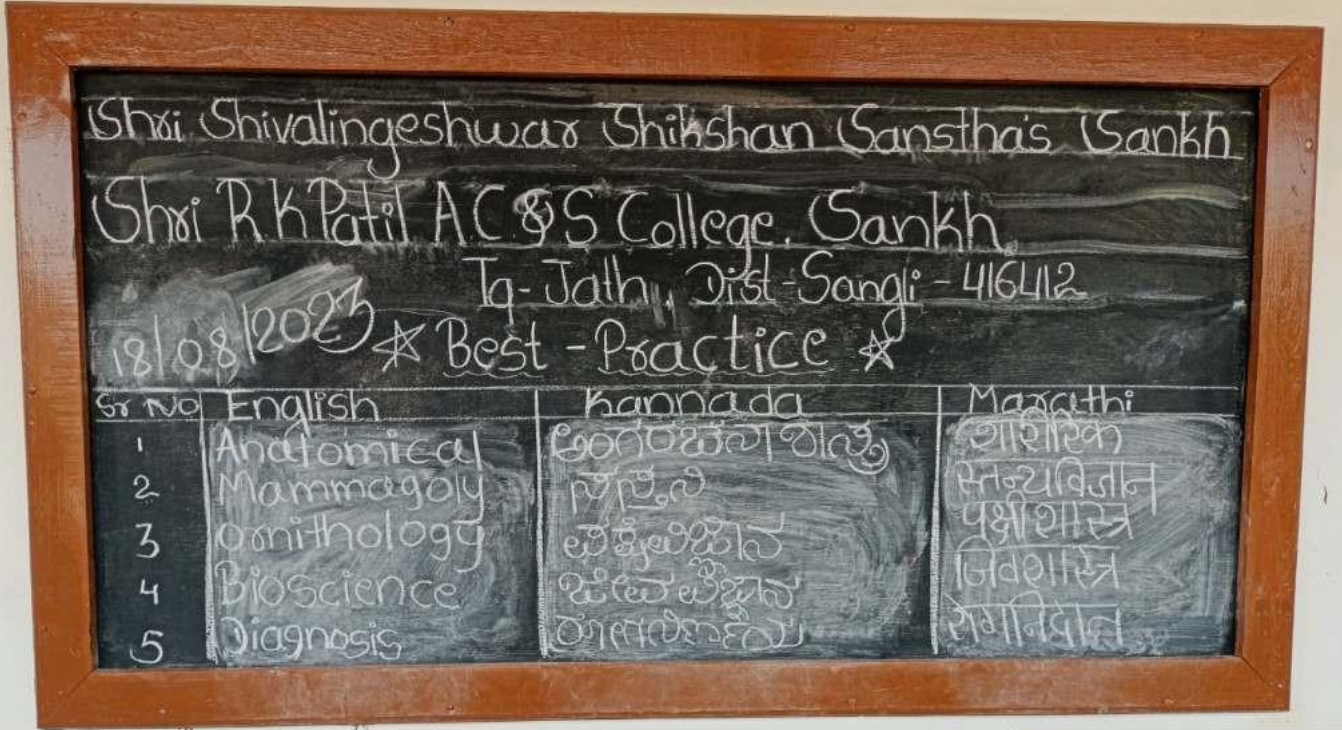 Shri Shivalingeshwar Shikshan Sanstha's Sankh
Shri R K Patil A C & S College, Sankh
Tq - Jath, Dist - Sangli - 416412
18/08/2023 Best - Practice
Sr No English Kannada Marathi
1 Anatomical ಅಂಗರಚನಾ शारिरिक
2 Mammagoly स्तन्यविज्ञान
3 Ornithology ಪಕ್ಷಿವಿಜ್ಞಾನ पक्षीशास्त्र
4 Bioscience ಜೀವ ವಿಜ್ಞಾನ जिवशास्त्र
5 Diagnosis रोगनिदान